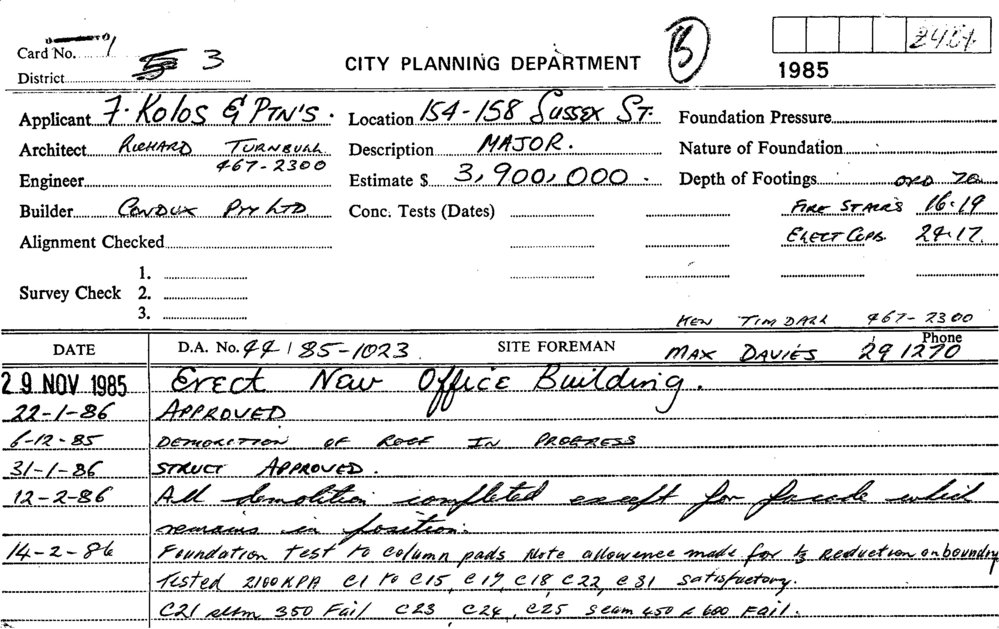 Card No. 1
District 3
CITY PLANNING DEPARTMENT
B
2467
1985
Applicant F. Kolos & PTN'S. Location 154-158 SUSSEX ST. Foundation Pressure
Architect RICHARD TURNBULL Description MAJOR. Nature of Foundation
467-2300
Engineer Estimate $ 3,900,000. Depth of Footings ORD 70
Builder CONDUX PTY LTD Conc. Tests (Dates) FIRE STAIRS 16.19
Alignment Checked ELECT CUPB. 24.17.
Survey Check 1.
2.
3.
KEN TIMDALL 467-2300
DATE D.A. No. 44/85-1023 SITE FOREMAN MAX DAVIES Phone 291270
29 NOV 1985 Erect New Office Building.
22-1-86 APPROVED
6-12-85 DEMOLITION OF ROOF IN PROGRESS
31-1-86 STRUCT APPROVED.
12-2-86 All demolition completed except for facade which
remains in position.
14-2-86 Foundation test to column pads Note allowence made for ⅓ Reduction on boundry
Tested 2100 KPA C1 to C15, C17, C18 C22, C31 Satisfactory.
C21 seam 350 Fail C23 C24, C25 Seam 450 & 600 Fail.